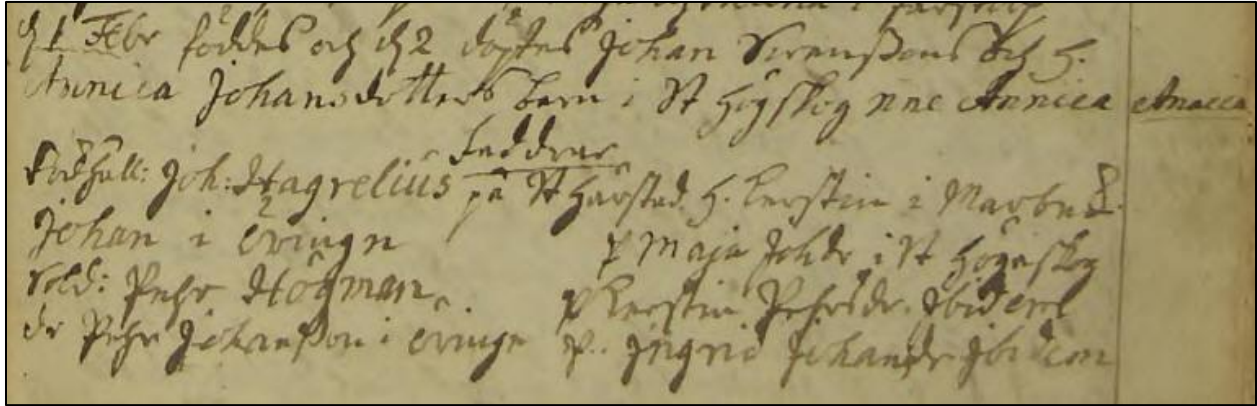 d 1 Febr föddes och d 2 döptes Johan Svenssons och h.
Annica Johansdotters barn i St Högskog nne Annica Annica
Faddrar
Joh: Hagrelius på St Harstad. h. Kerstin i
Johan i Öringe p Maja Johdr i St Högeskog
Sold: Pehr Högman p Kerstin Pehrsdr. Ibidem
dr Pehr Johansson i Öringe p. Ingrid Johansdr Ibidem